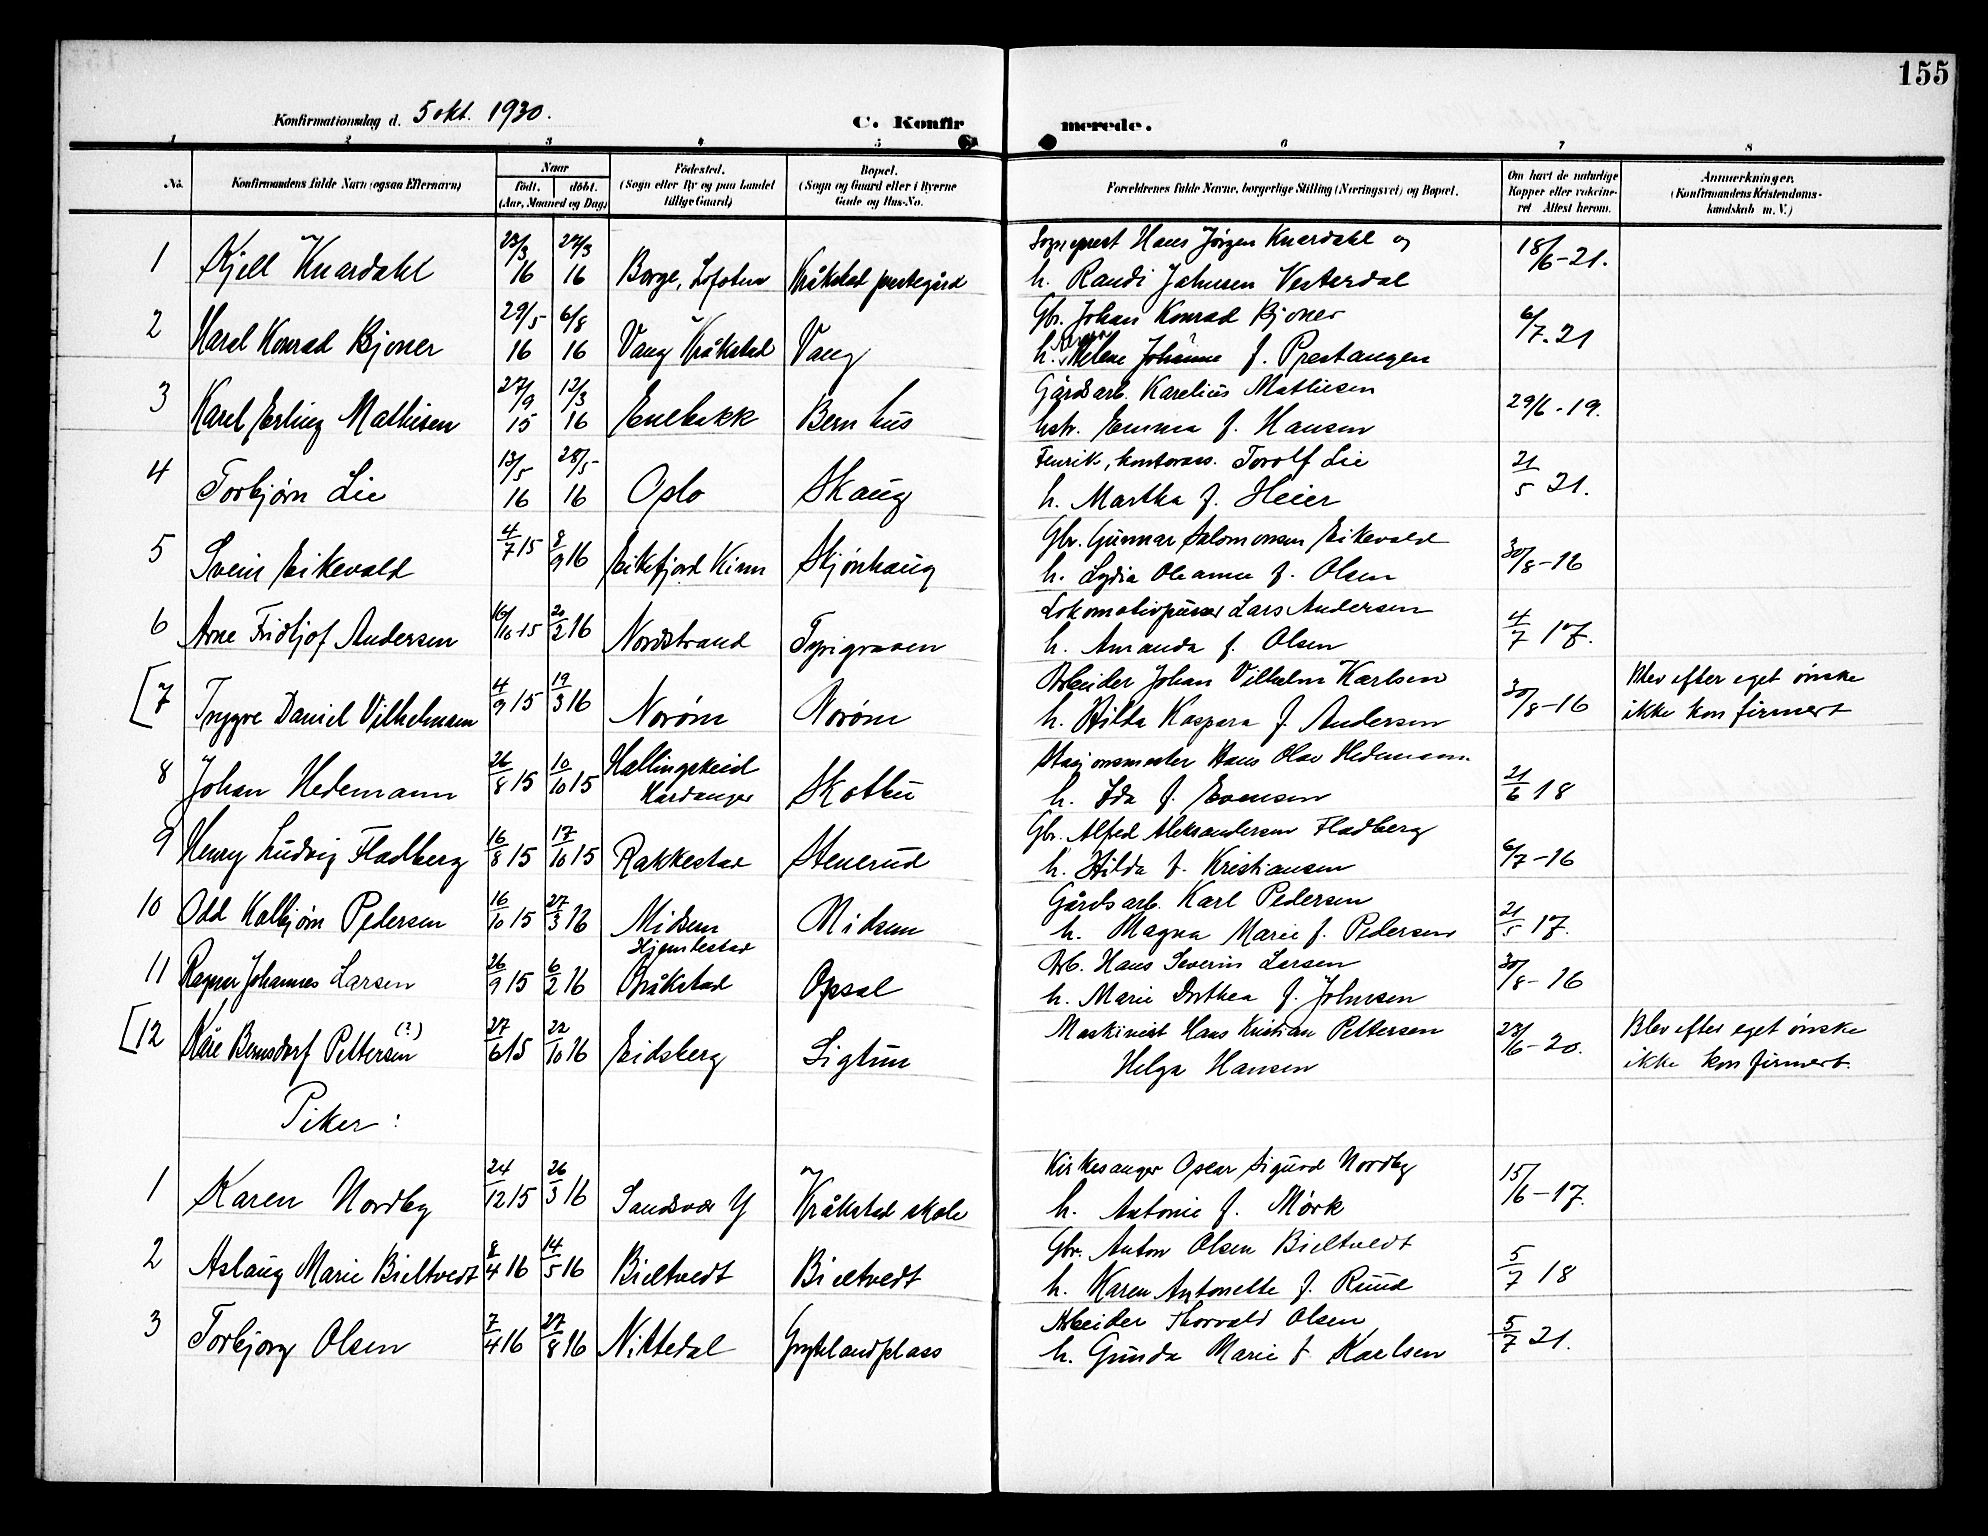 155
Konfirmationsdag d. 5 okt. 1930.
C. Konfirmerede.
1 2 3 4 5 6 7 8
No. Konfirmandens fulde Navn (ogsaa Efternavn) Naar födt. döbt. (Aar, Maaned og Dag) Födested. (Sogn eller By og paa Landet tillige Gaard) Bopæl. (Sogn og Gaard eller i Byerne Gade og Hus-No. Forældrenes fulde Navne, borgerlige Stilling (Næringsvei) og Bopæl. Om havt de naturlige Kopper eller vakcineret. Attest herom. Anmerkninger. (Konfirmandens Kristendomskundskab m. V.)
1 Kjell Knardahl 23/3 16 27/3 16 Borge, Lofoten Kråkstad prestegård Sogneprest Hans Jørgen Knardahl og 18/6-21.
h. Randi Johnsen Vesterdal
2 Harel Konrad Bjoner 29/5 16 6/8 16 Vang Kråkstad Vang Gbr. Johan Konrad Bjoner 6/7-21
h. Helene Johanne f. Prestangen
3 Karel Erling Mathisen 27/9 15 12/3 16 Enebakk Bernhus Gårdsarb. Karelius Mathisen 29/6-19.
hstr. Emma f. Hansen
4 Torbjørn Lie 13/5 16 28/5 16 Oslo Skaug Fenrik, kontorass. Torolf Lie 21/5 21.
h. Martha f. Heier
5 Svein Eikevold 4/7 15 8/9 16 Eikefjord Kinn Skjønhaug Gbr. Gunnar Salomonsen Eikevold 30/8-16
h. Lydia Oleanna f. Olsen
6 Arne Fridtjof Andersen 16/10 15 20/2 16 Nordstrand Tyrigraven Lokomotivpusser Lars Andersen 4/7 17.
h. Amanda f. Olsen
[7 Trygve Daniel Vilhelmsen 4/9 15 19/3 16 Norøm Norøm Arbeider Johan Vilhelm Karlsen 30/8-16 Blev efter eget ønske
h. Hilda Kaspara f. Andersen ikke konfirmert
8 Johan Hedemann 26/8 15 10/10 15 Hallingskeid Hardanger Skotbu Stasjonsmester Hans Olav Hedemann 21/6 18
h. Ida f. Evensen
9 Henry Ludvig Fladberg 16/8 15 17/10 15 Rakkestad Stenerud Gbr. Alfred Aleksandersen Fladberg 6/7-16
h. Hilda f. Kristiansen
10 Odd Kolbjørn Pedersen 16/10 15 27/3 16 Midsem Midsem Gårdsarb. Karl Pedersen 21/5 17.
h. Magna Marie f. Pedersen
11 Ragnar Johannes Larsen 26/9 15 6/2 16 Kråkstad Opsal Arb. Hans Severin Larsen 30/8-16
h. Marie Dorthea f. Johnsen
[12 Kåre Bernsdorf Pettersen (?) 27/6 15 22/10 16 Eidsberg Sigtun Maskinist Hans Kristian Pettersen 23/6-20. Blev efter eget ønske
Helga Hansen ikke konfirmert.
Piker:
1 Karen Nordby 24/12 15 26/3 16 Sandsvær Kråkstad skole Kirkesanger Oscar Sigurd Nordby 15/6-17.
h. Antonie f. Mørk
2 Aslaug Marie Bieltvedt 8/4 16 14/5 16 Bieltvedt Bieltvedt Gbr. Anton Olsen Bieltvedt 5/7 18
h. Karen Antonette f. Ruud
3 Torbjorg Olsen 7/4 16 27/8 16 Nittedal Arbeider Thorvald Olsen 5/7 21.
h. Gunda Marie f. Karlsen